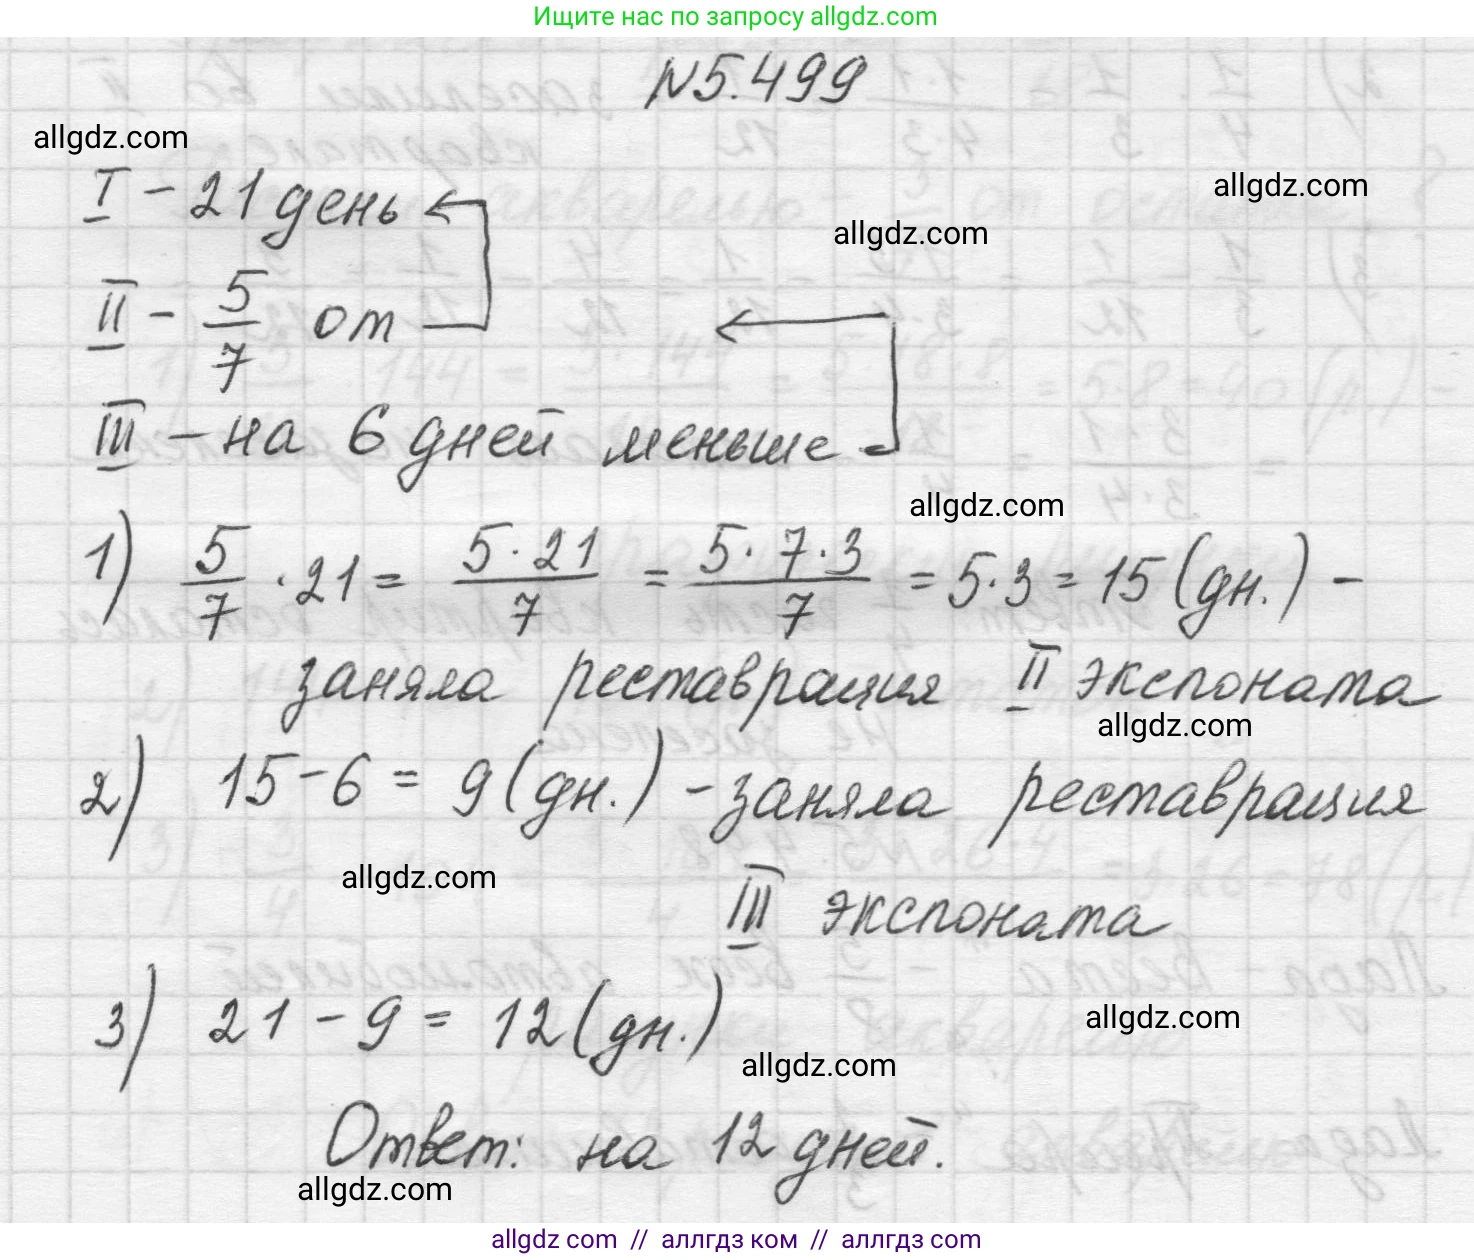 Ищите нас по запросу allgdz.com
N5.499
allgdz.com
allgdz.com
I - 21 день
allgdz.com
II - 5/7 от
III - на 6 дней меньше
allgdz.com
1) 5/7 · 21 = 5·21/7 = 5·7·3/7 = 5·3 = 15 (дн.) -
заняла реставрация II экспоната
allgdz.com
2) 15 - 6 = 9 (дн.) - заняла реставрация
allgdz.com
III экспоната
3) 21 - 9 = 12 (дн.)
allgdz.com
allgdz.com
Ответ: на 12 дней.
allgdz.com
allgdz com // аллгдз ком // аллгдз com